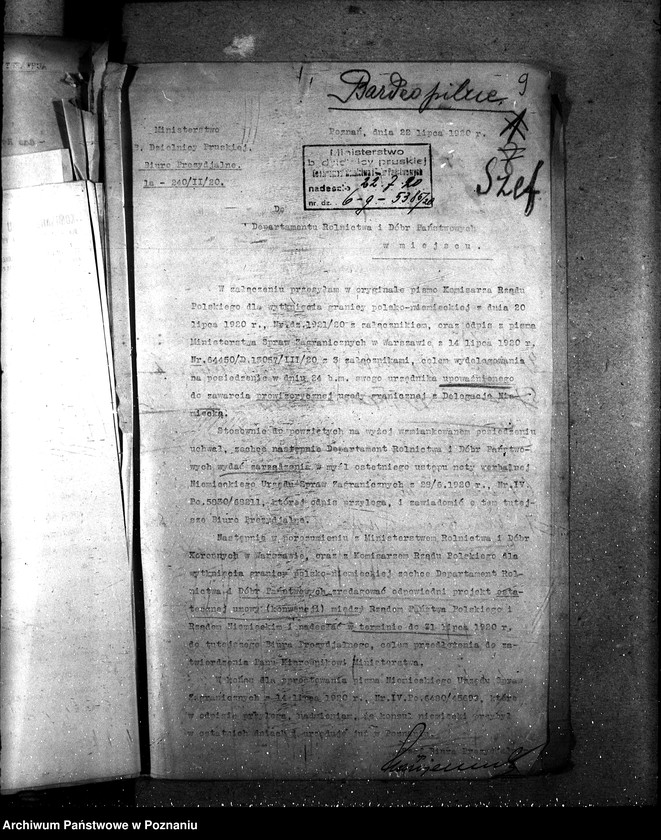 Bardzo pilne.
9
Ministerstwo
b. Dzielnicy Pruskiej.
Biuro Prezydjalne.
Ia - 240/II/20.
Poznań, dnia 22 lipca 1920 r.
Ministerstwo
b. dzielnicy pruskiej
nadeszło 22.7.20
nr. dz. 6-g-5365/20
Szef
Do
Departamentu Rolnictwa i Dóbr Państwowych
w miejscu.
W załączeniu przesyłam w oryginale pismo Komisarza Rządu
Polskiego dla wytknięcia granicy polsko-niemieckiej z dnia 20
lipca 1920 r., Nr.dz.1921/20 z załącznikiem, oraz odpis z pisma
Ministerstwa Spraw Zagranicznych w Warszawie z 14 lipca 1920 r.
Nr.64450/D.15057/III/20 z 3 załącznikami, celem wydelegowania
na posiedzenie w dniu 24 b.m. swego urzędnika upoważnionego
do zawarcia prowizorycznej ugody granicznej z Delegacją Nie-
miecką.
Stosownie do powziętych na wyżej wzmiankowanem posiedzeniu
uchwał, zechce następnie Departament Rolnictwa i Dóbr Państwo-
wych wydać zarządzenia w myśl ostatniego ustępu noty verbalnej
Niemieckiego Urzędu Spraw Zagranicznych z 28/6.1920 r., Nr.IV.
Po.5830/68211, której odpis przyległa, i zawiadomić o tem tutej-
sze Biuro Prezydjalne.
Następnie w porozumieniu z Ministerstwem Rolnictwa i Dóbr
Koronnych w Warszawie, oraz z Komisarzem Rządu Polskiego dla
wytknięcia granicy polsko-niemieckiej zechce Departament Rol-
nictwa i Dóbr Państwowych zredagować odpowiedni projekt osta-
tecznej umowy (konwencji) między Rządem Państwa Polskiego i
Rządem Niemieckim i nadesłać w terminie do 31 lipca 1920 r.
do tutejszego Biura Prezydjalnego, celem przedłożenia do za-
twierdzenia Panu Kierownikowi Ministerstwa.
W końcu dla sprostowania pisma Niemieckiego Urzędu Spraw
Zagranicznych z 14 lipca 1920 r., Nr.IV.Po., które
w odpisie przyległa, nadmieniam, że konsul niemiecki przybył
w ostatnich dniach i urzęduje już w
Biura
Archiwum Państwowe w Poznaniu